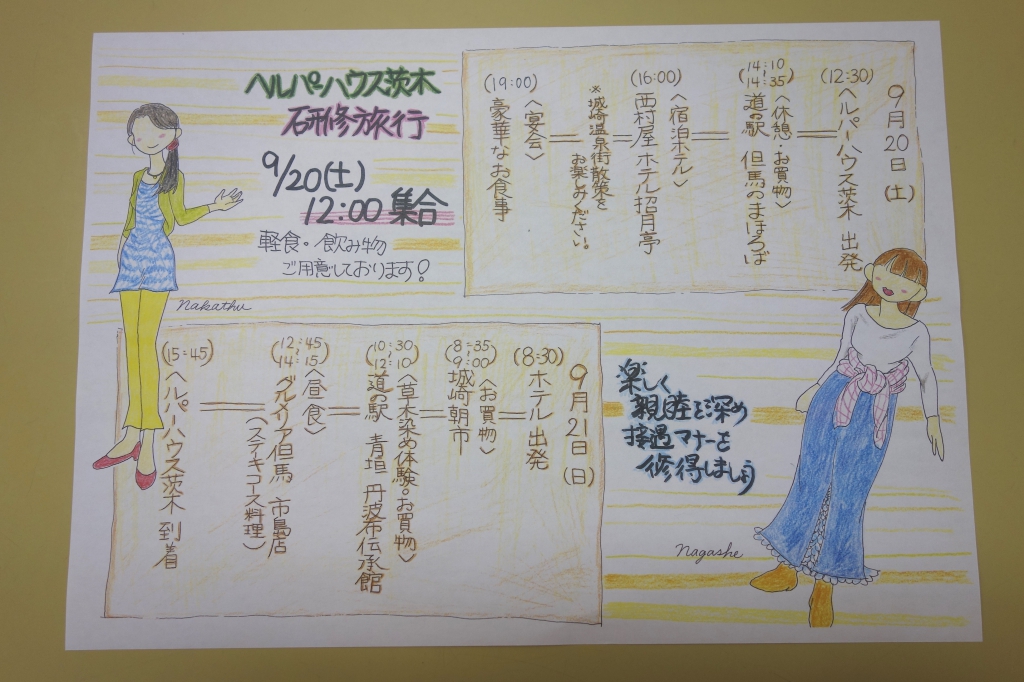 ヘルパーハウス茨木
研修旅行
9/20(土)
12:00 集合
軽食・飲み物
ご用意しております!
Nakathu
9月20日(土)
(12:30)
ヘルパーハウス茨木 出発
14:10
~
14:35
〈休憩・お買物〉
道の駅 但馬のまほろば
(16:00)
〈宿泊ホテル〉
西村屋 ホテル招月亭
※城崎温泉街散策を
お楽しみください。
(19:00)
〈宴会〉
豪華なお食事
9月21日(日)
(8:30)
ホテル出発
(8:35
~
9:00)
〈お買物〉
城崎朝市
(10:30
~
12:10)
〈草木染め体験・お買物〉
道の駅 青垣 丹波布伝承館
(12:45
~
14:15)
〈昼食〉
グルメリア但馬 市島店
(ステーキコース料理)
(15:45)
ヘルパーハウス茨木 到着
楽しく
親睦を深め
接遇マナーを
修得しましょう
Nagashe